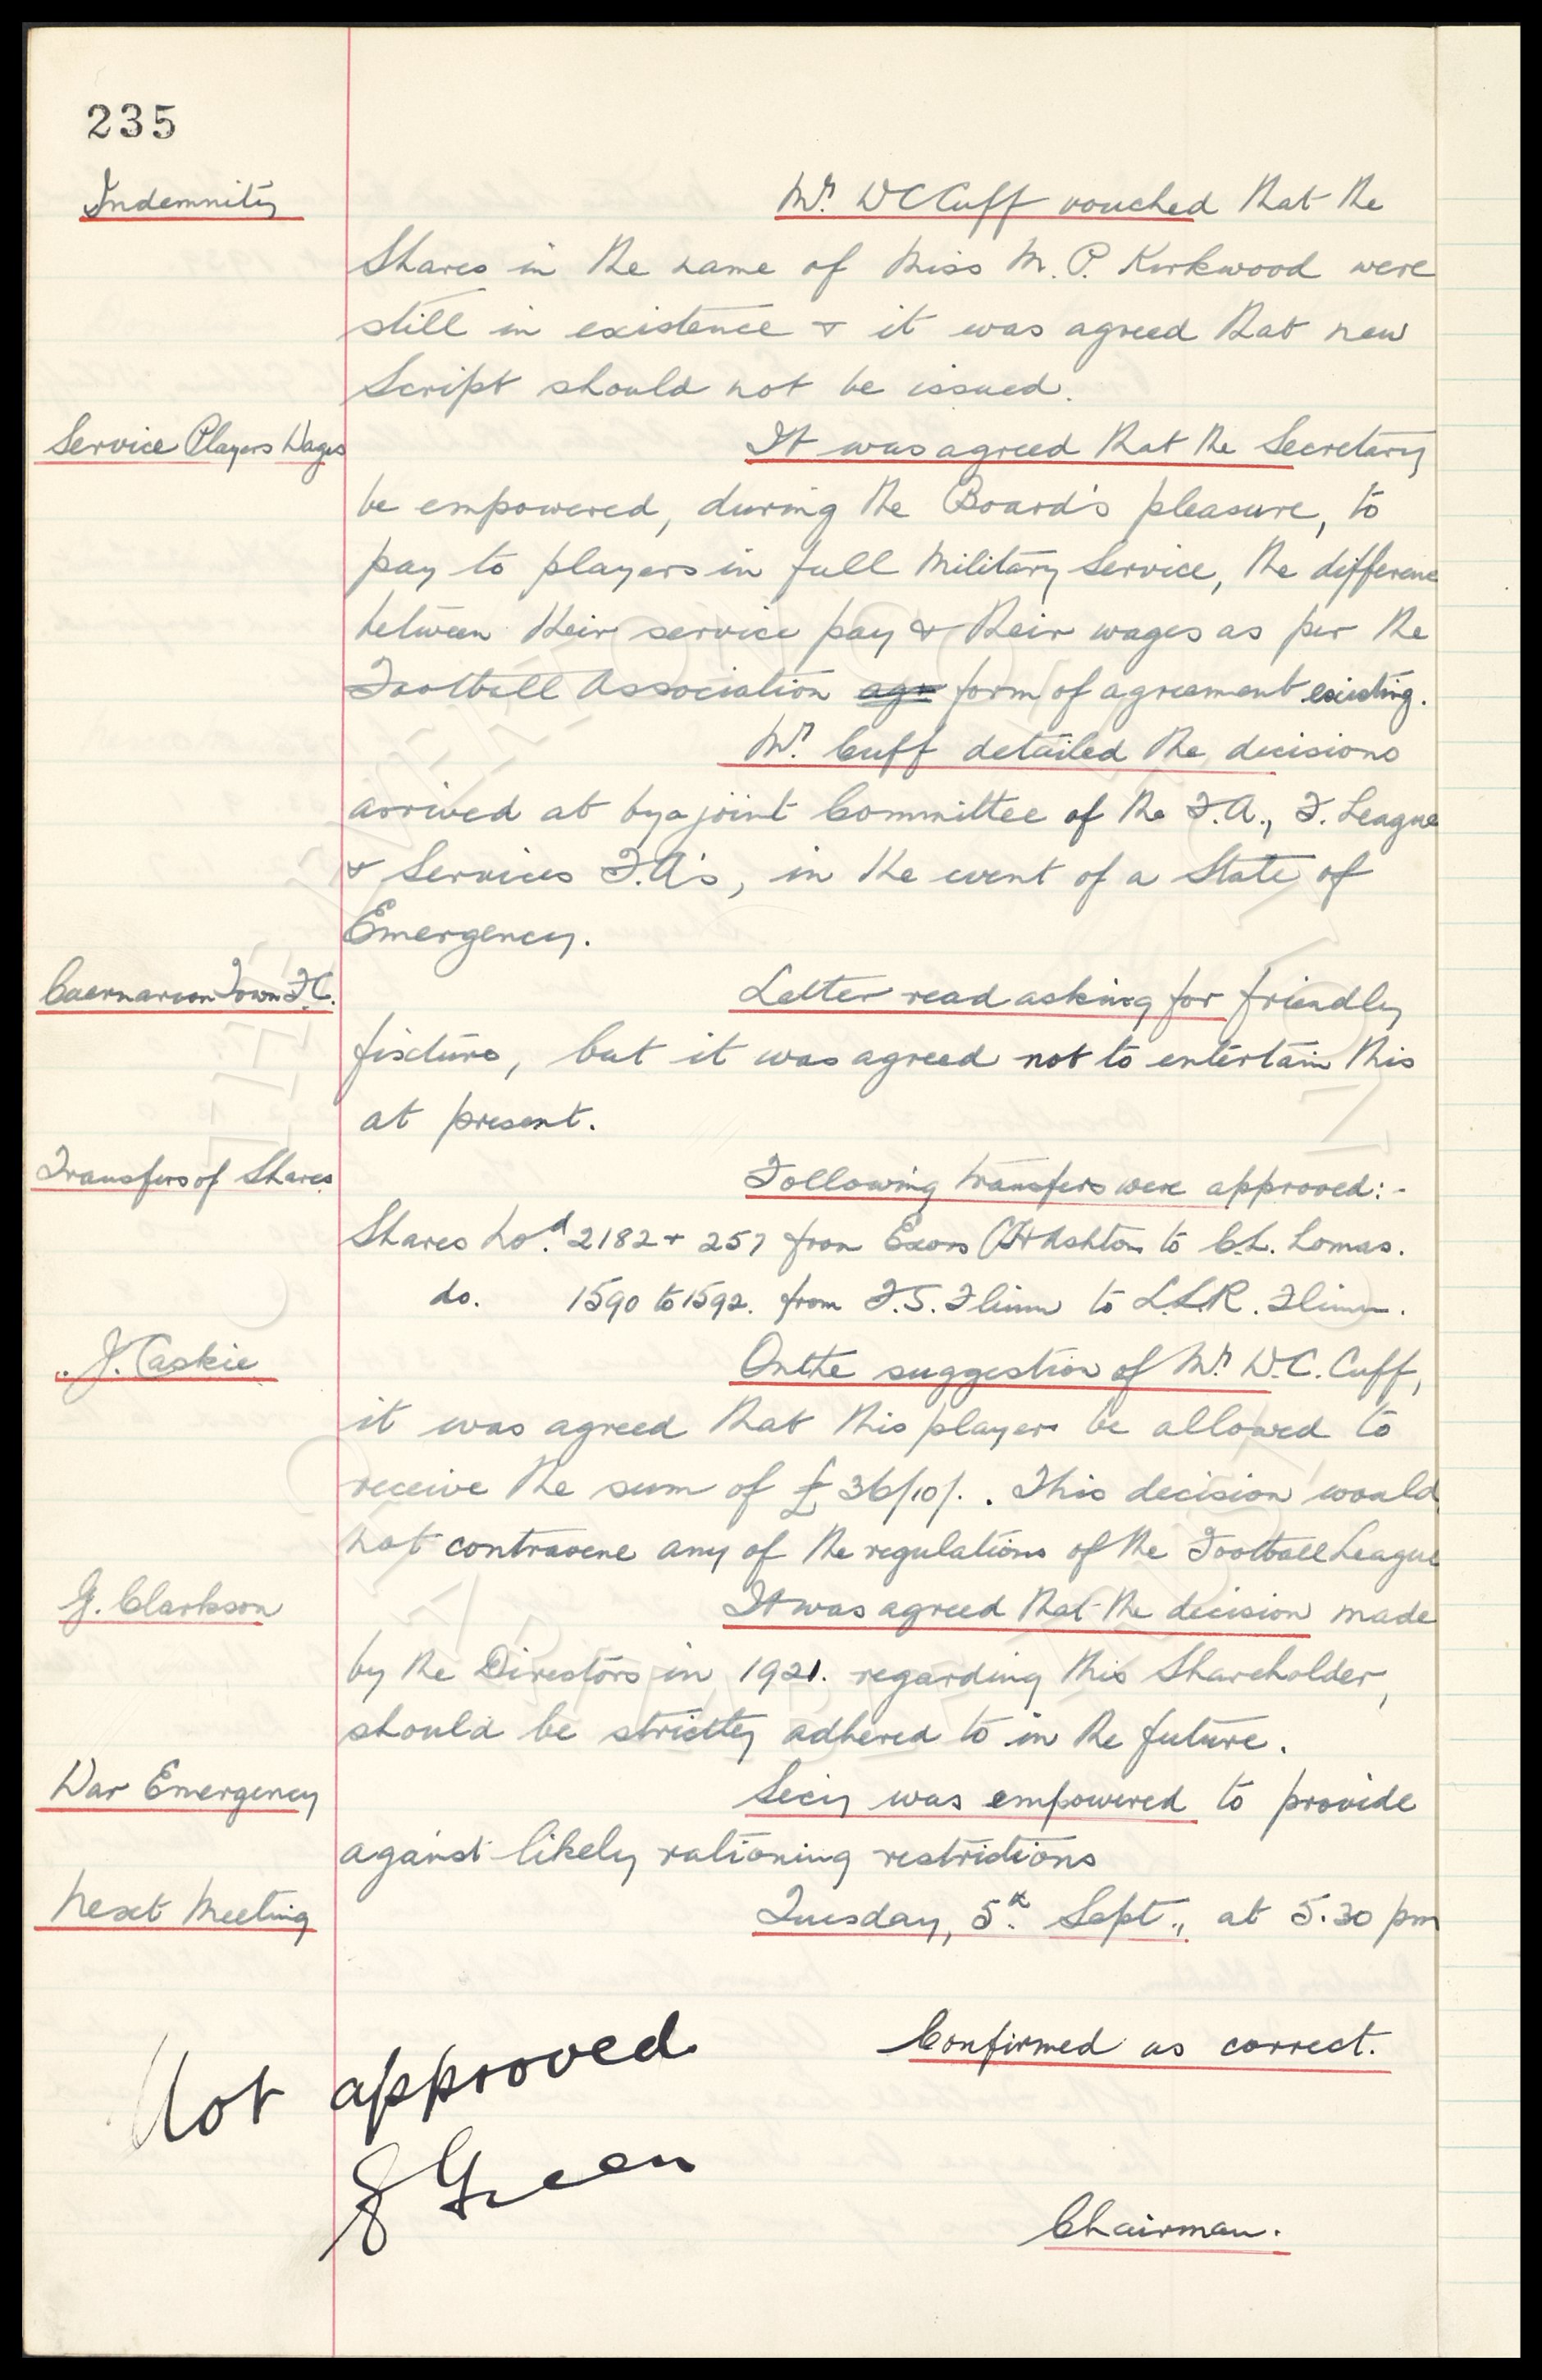 235
Indemnity
Mr. W C Cuff vouched that the
Shares in the name of Miss M. P. Kirkwood were
still in existence & it was agreed that new
Script should not be issued.
Service Players Wages
It was agreed that the Secretary
be empowered, during the Board's pleasure, to
pay to players in full Military Service, the difference
between their service pay & their wages as per the
Football Association agr form of agreement existing.
Mr. Cuff detailed the decisions
arrived at by a joint Committee of the F.A., F. League
& Services F.A's, in the event of a State of
Emergency.
Caernarvon Town F.C.
Letter read asking for friendly
fixture, but it was agreed not to entertain this
at present.
Transfers of Shares
Following transfers were approved:-
Shares No.d 2182 & 257 from Exors C H Ashton to C.L. Lomas.
do. 1590 to 1592. from F.S. Flinn to L.L.R. Flinn.
J. Caskie
On the suggestion of Mr. W.C. Cuff,
it was agreed that this player be allowed to
receive the sum of £36/10/. . This decision would
not contravene any of the regulations of the Football League
G. Clarkson
It was agreed that the decision made
by the Directors in 1921. regarding this Shareholder,
should be strictly adhered to in the future.
War Emergency
Secy was empowered to provide
against likely rationing restrictions
Next Meeting
Tuesday, 5th Sept., at 5.30 pm
Confirmed as correct.
Not approved
Green
Chairman.